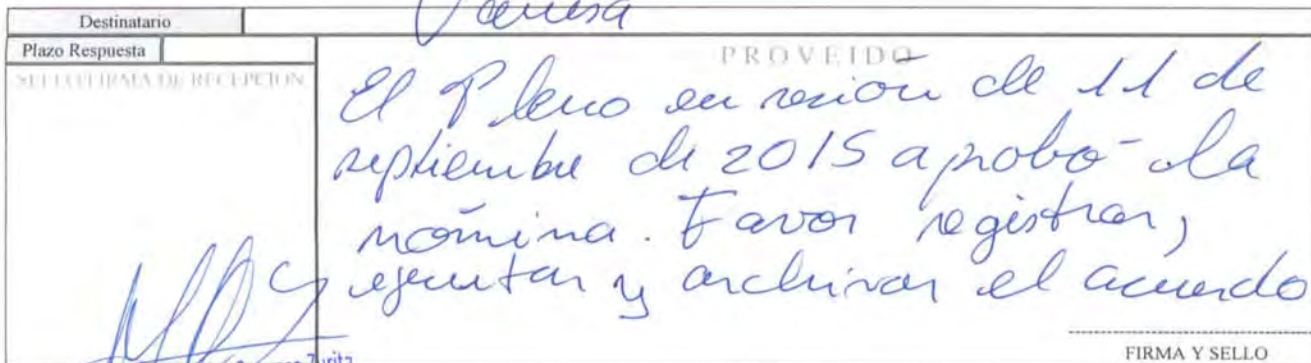 Destinatario
Vanesa
Plazo Respuesta
PROVEIDO
SELLO/FIRMA DE RECEPCION
El Pleno en sesión de 11 de
septiembre de 2015 aprobó la
nómina. Favor registrar,
ejecutar y archivar el acuerdo
Zurita
FIRMA Y SELLO